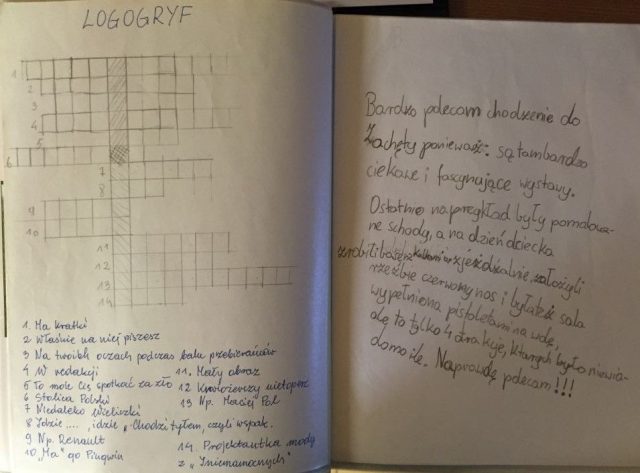 LOGOGRYF
1
2
3
4
5
6
7
8
9
10
11
12
13
14
1. Ma kratki
2 Właśnie na niej piszesz
3 Na twoich oczach podczas balu przebierańców
4 W redakcji
5 To może Cię spotkać za zło
6 Stolica Polski
7 Niedaleko Wieliczki
8 Idzie .... , idzie „Chodzi tyłem, czyli wspak.
9 Np. Renault
10 „Ma" go Pingwin
11. Mały obraz
12 Krwiożerczy nietoperz
13 Np. Maciej Pol
14. Projektantka mody
z „Iniemamocnych"
Bardzo polecam chodzenie do
Zachęty ponieważ: są tam bardzo
ciekawe i fascynujące wystawy.
Ostatnio na przykład były pomalowa-
ne schody, a na dzień dziecka
zrobili basen z kulkami zjeżdżalnie, założyli
rzeźbie czerwony nos i była też sala
wypełniona pistoletami na wodę,
ale to tylko 4 atrakcje, których było niewia-
domo ile. Naprawdę polecam!!!